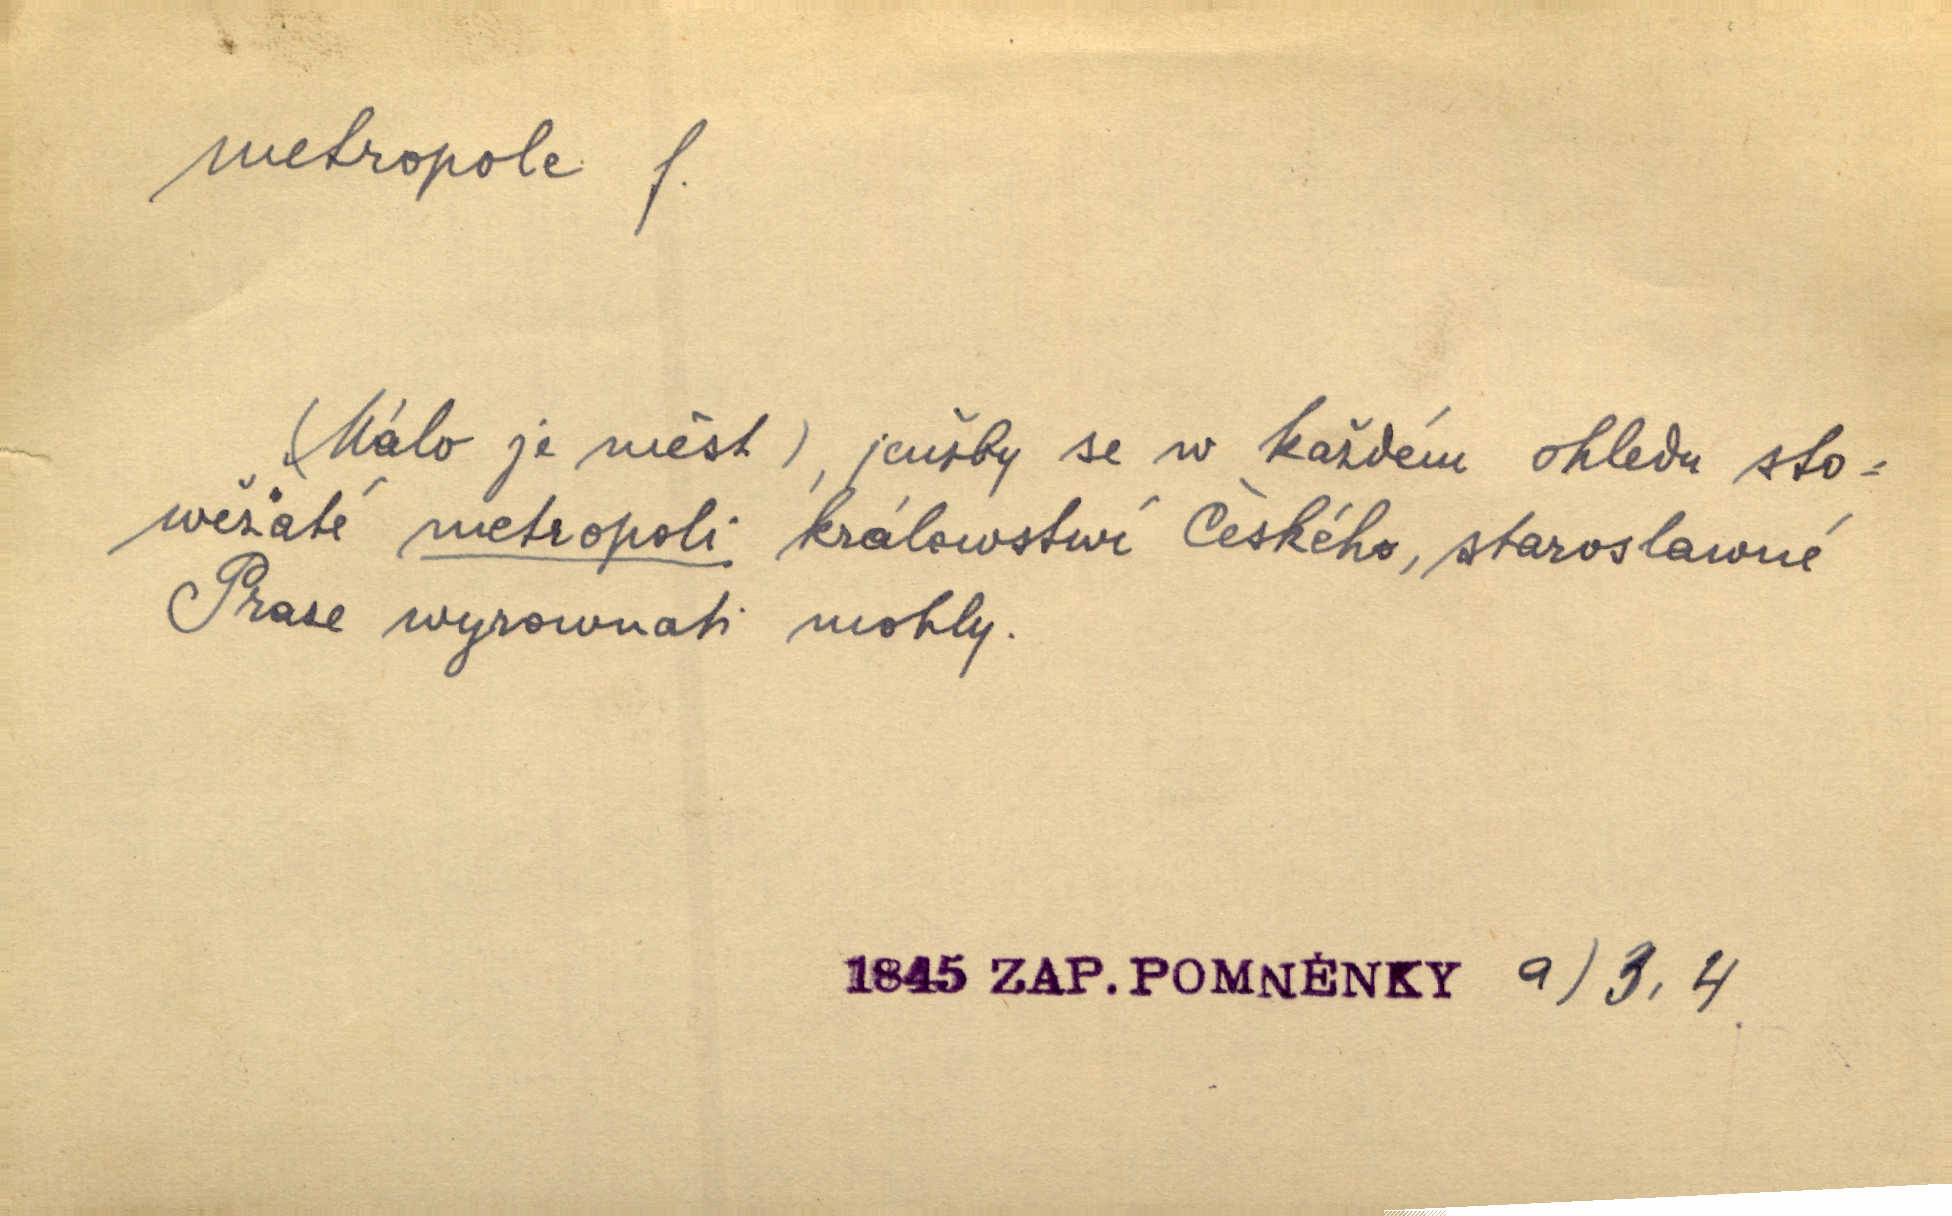 metropole f.
(Málo je měst), jenžby se w každém ohledu sto=
wěžaté metropoli králowstwí Českého, staroslawné
Praze wyrownati mohly.
1845 ZAP. POMNĚNKY a) 3, 4